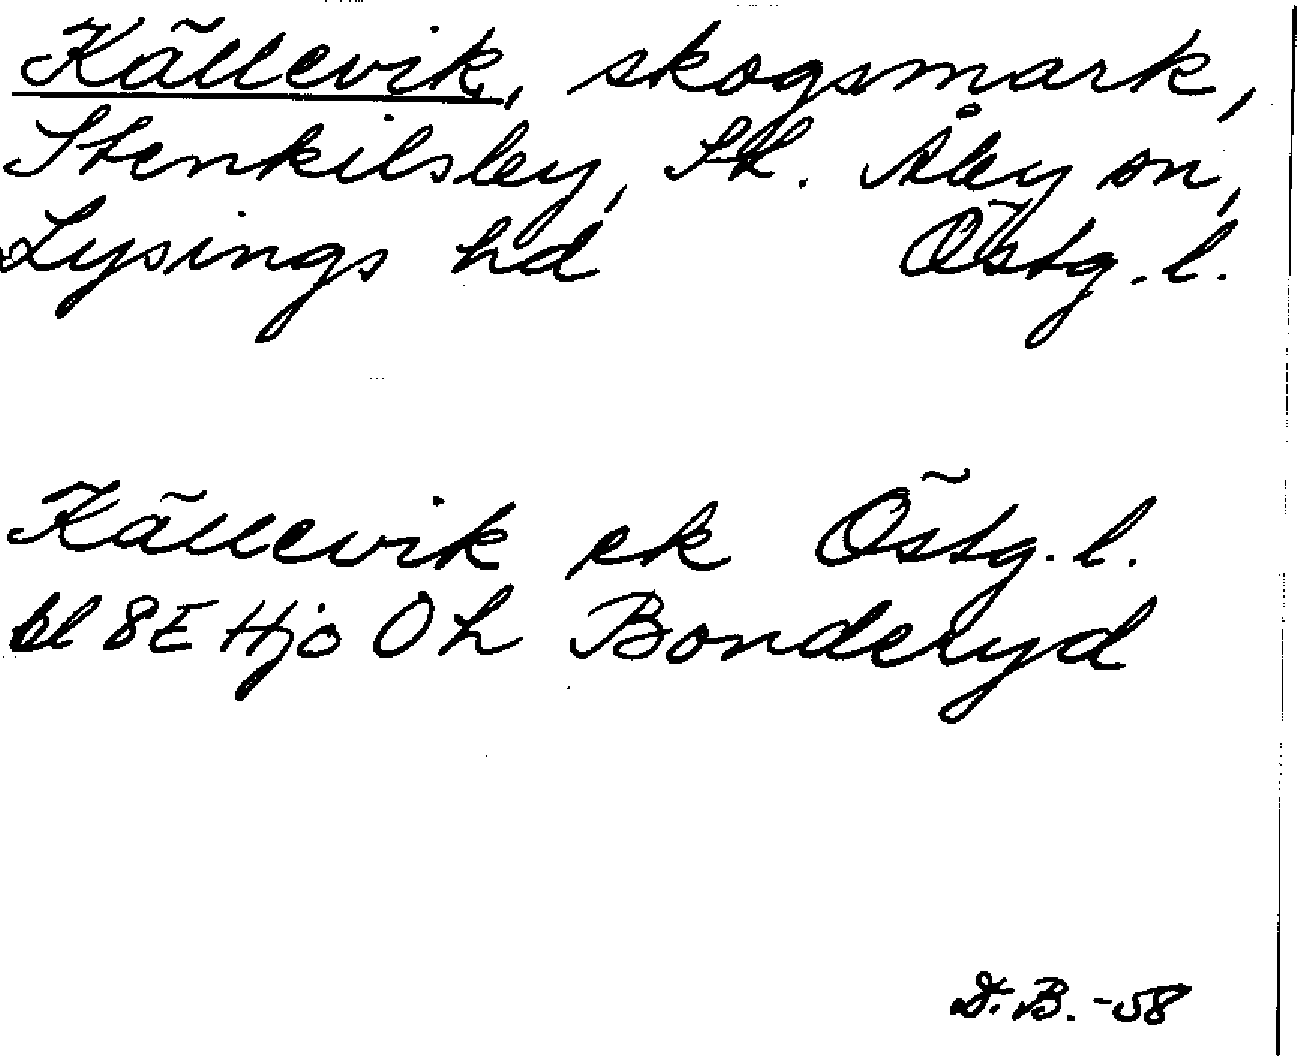 Källevik, skogsmark,
Stenkilsby, St. Åby sn,
Lysings hd Östg. l.
Källevik ek Östg. l.
bl 8E Hjo Öh Bonderyd
D. B. -58